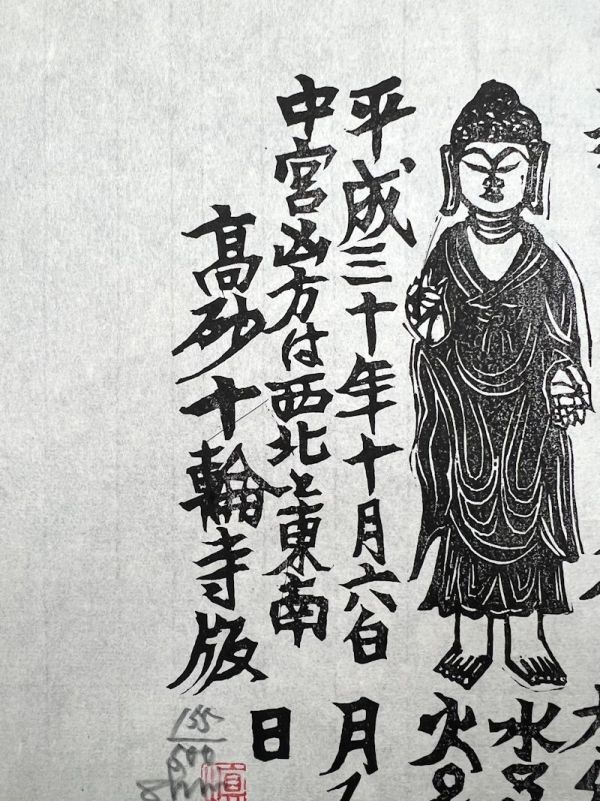 平成三十年十月六白
中宮凶方は西北と東南
高砂十輪寺版
水
火
月
日
155/500